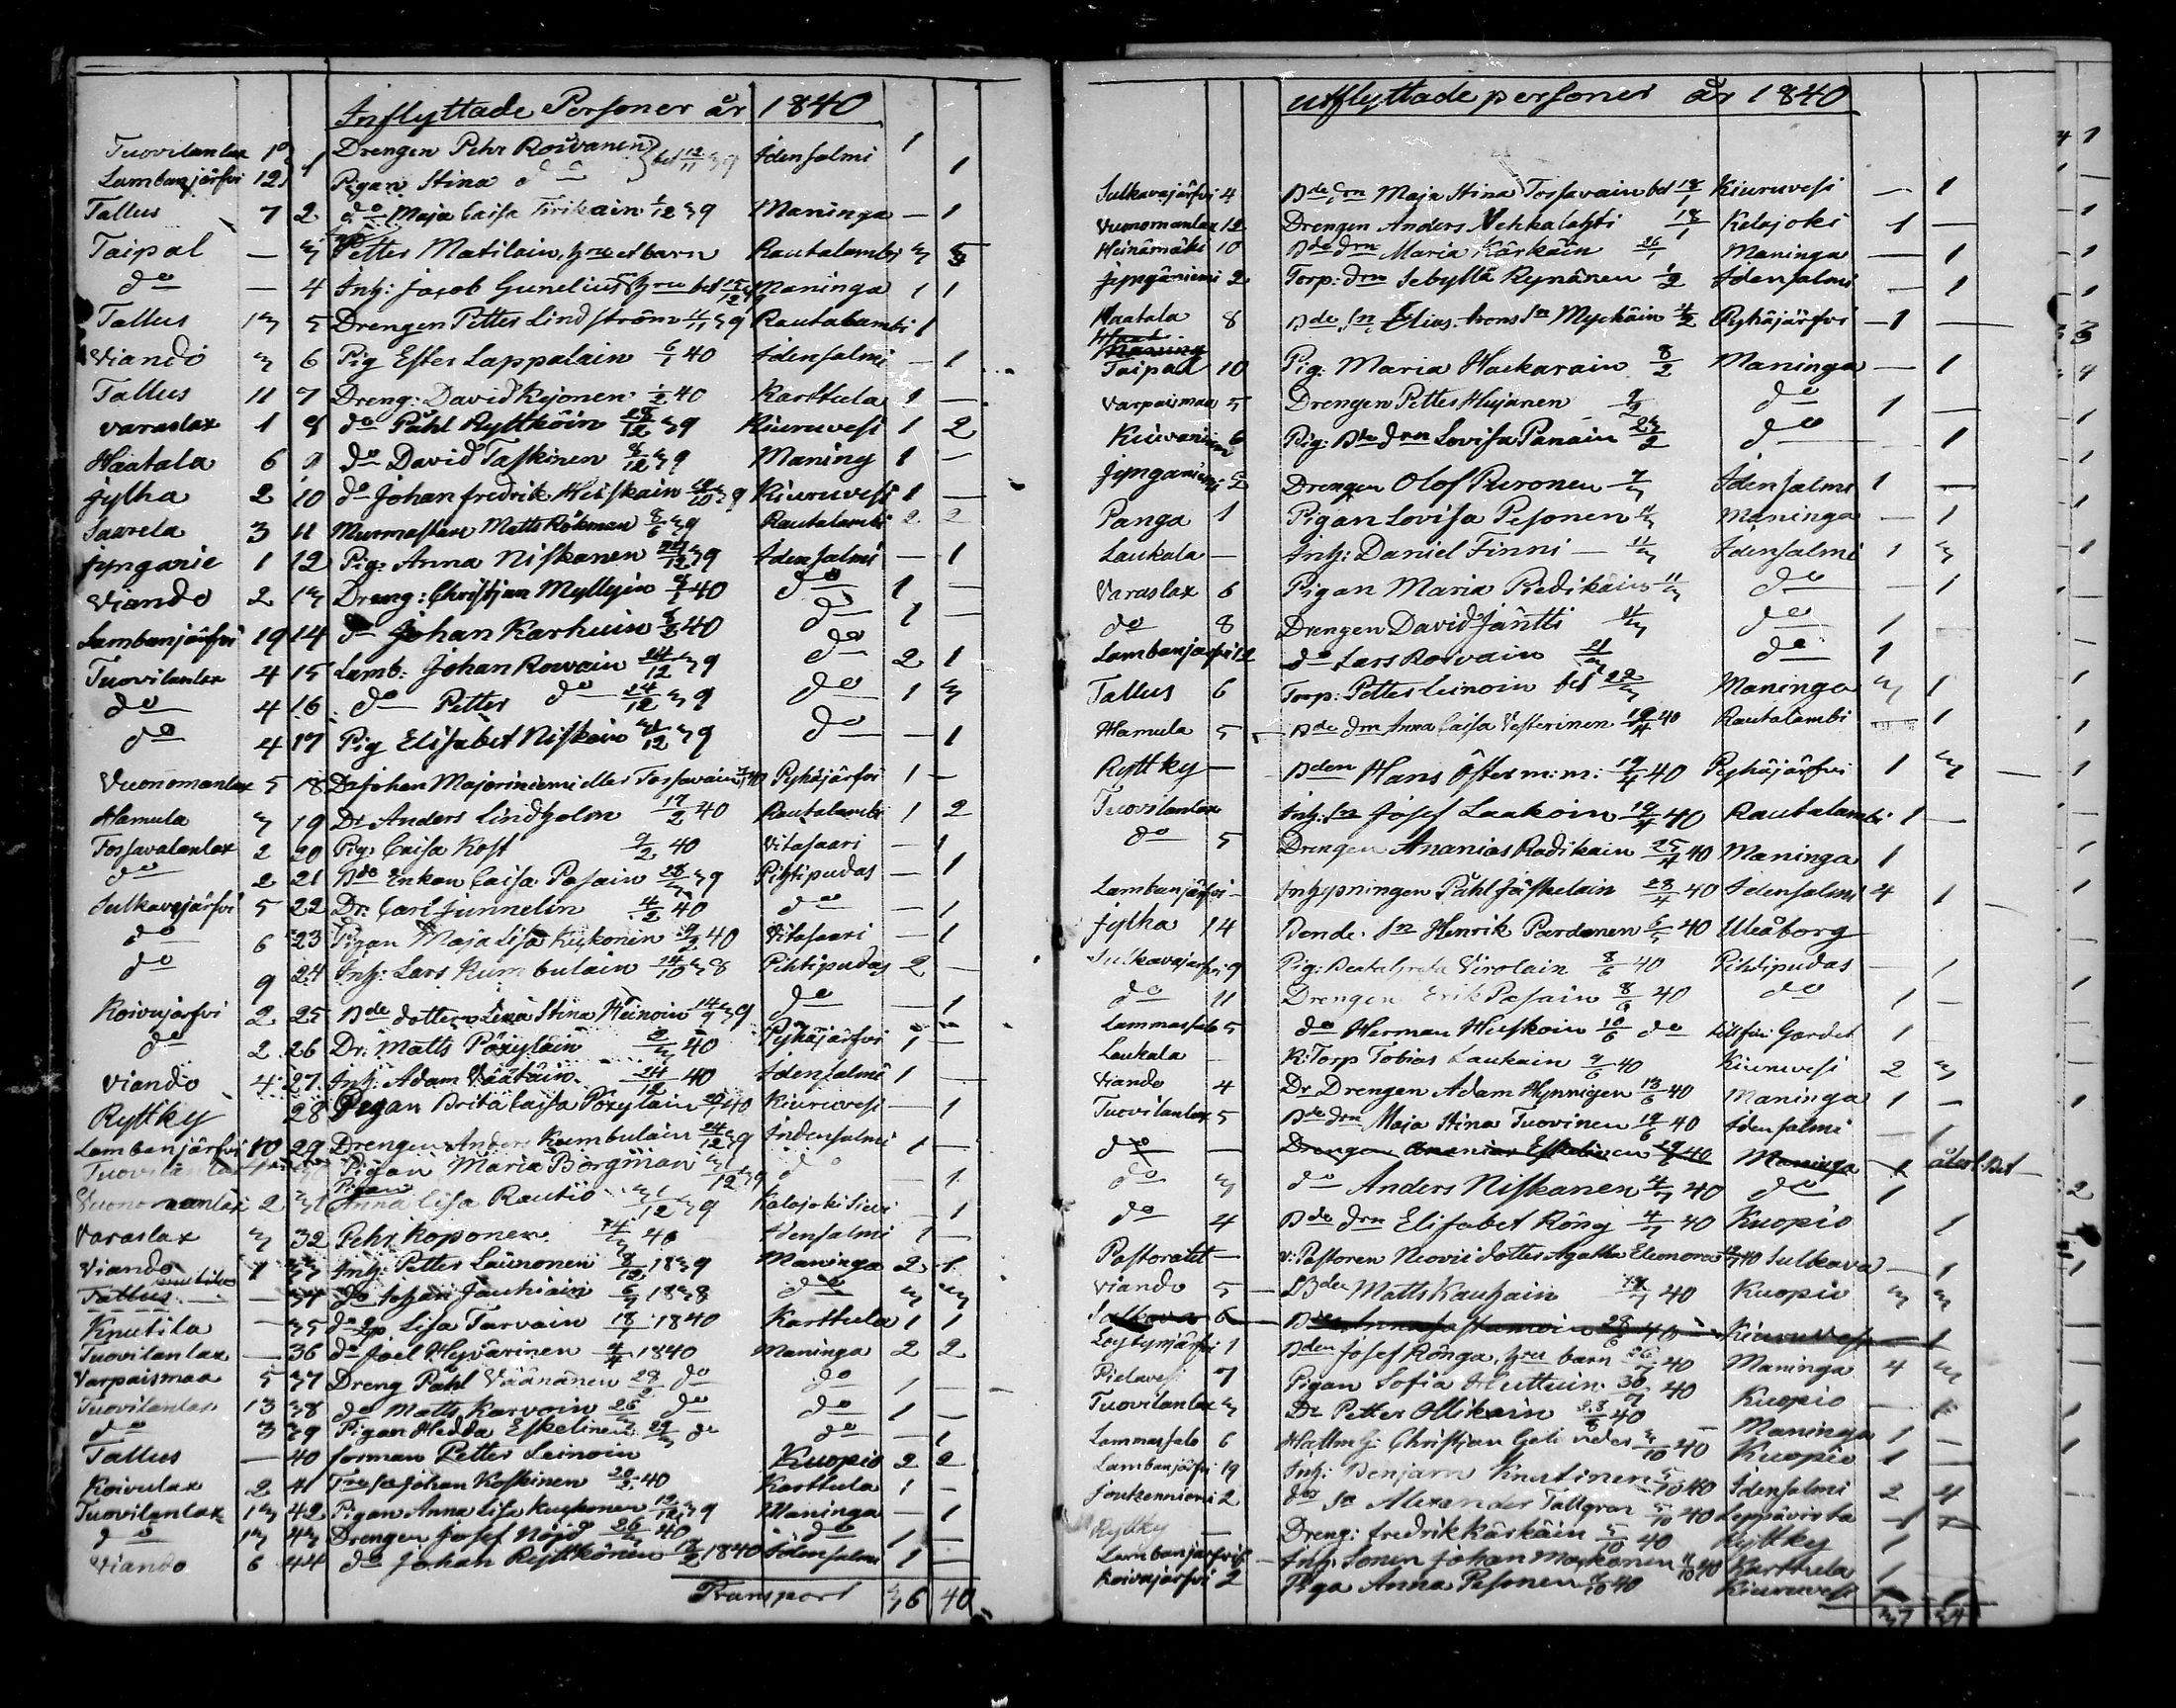 Inflyttade Personer år 1840
Tuovilanlax 10 1 Drengen Pehr Roivanen bet 12/11 39 Idensalmi 1
Lambanjärfvi 12 Pigan Stina do 1
Tallus 7 2 do Maja Caisa Tirikain 1/12 39 Maninga — 1
Taipal — 3 Petter Matilain, hru et barn Rautalambi 3 3
do — 4 Inh: Jacob Gunelius hru bet Maninga 1 1
Tallus 13 5 Drengen Petter Lindström 4/11 39 Rautalambi 1
Viando 3 6 Pig Ester Lappalain 6/1 40 Idensalmi — 1
Tallus 11 7 Dreng: David Kejonen 1/2 40 Karttula 1 —
Varaslax 1 8 do Påhl Ryttköin 28/12 39 Kiuruvesi 1 2
Haatala 6 9 do David Taskinen 8/12 39 Maning 1 —
Jylha 2 10 do Johan fredrik Heiskain 39 Kiuruvesi 1 —
Saarela 3 11 Murmästare Matts Rökman 8/6 39 Rautalambi 2 2
Jynganie 1 12 Pig: Anna Niskanen 39 Idensalmi — 1
Viando 2 13 Dreng: Christjan Myllyin 40 do 1 —
Lambanjärfvi 19 14 do Johan Karhuin 40 do 1 —
Tuovilanlax 4 15 Lamb: Johan Rowain 24/12 39 do 2 1
do 4 16 do Petter do 24/12 39 do 1 3
do 4 17 Pig Elisabet Niskain 39 do — 1
Vuonomanlax 5 18 Dr Johan Majoriniemi eller Tossavain 40 Pyhäjärfvi 1 —
Hamula 3 19 Dr Anders Lindholm 17/2 40 Rautalambi 1 2
Tossavalanlax 2 20 Pig: Caisa Kost 9/2 40 Vitasaari — 1
do 2 21 Bde Enkan Caisa Pasain 39 Pihtipudas — 1
Sulkavajärfvi 5 22 Dr: Carl Junnelin 4/2 40 do — 1
do 6 23 Pigan Maja Lisa Kuckonen 9/2 40 Vitasaari — 1
do 9 24 Inh: Lars Kumbulain 14/10 38 Pihtipudas 2 —
Koivujärfvi 2 25 Bde dottern Lena Stina Heinoin 14/9 39 do — 1
do 2 26 Dr: Matts Pöxyläin 2/3 40 Pyhäjärfvi 1 —
Viando 4 27 Inh: Adam Väätäin 24/12 40 Idensalmi 1 —
Ryttky 28 Pigan Brita Caisa Pöxyläin 40 Kiuruvesi — 1
Lambanjärfvi 10 29 Drengen Anders Kumbulain 24/12 39 Indensalmi 1 —
Tuovilanlax Pigan Maria Borgman 39 do — 1
Vuonomanlax 2 31 Pigan Anna Lisa Rautio 39 Kalajoki — 1
Varaslax 3 32 Pehr Koponen 40 Idensalmi 1 —
Viando 1 33 Inh: Petter Launonen 8/12 1839 Maninga 2 1
Tallus — 34 do Johan Jauhiain 6/7 1838 do 3 3
Knutila — 35 do Lisa Tarvain 1840 Karttula 1 1
Tuovilanlax — 36 do Joel Hyvärinen 1840 Maninga 2 2
Varpaismaa 5 37 Dreng Påhl Väänänen do do 1 —
Tuovilanlax 13 38 do Matts Karvoin do do 1 —
do 3 39 Pigan Hedda Eskelinen do do — 1
Tallus — 40 forman Petter Leinoin Kuopio 2 2
Koivulax 2 41 Johan Koskinen 20/2 40 Karttula 1 —
Tuovilanlax 13 42 Pigan Anna Lisa Kuckonen 39 Maninga — 1
do 13 43 Drengen Josef Nöjd 40 do 1 —
Viando 6 44 do Johan Ryttkönen 1840 Idensalmi 1 —
Transport 36 40
utflyttade personer år 1840
Sulkavajärfvi 4 Bde drn Maja Stina Tossavain bet 18/1 Kiuruvesi — 1
Vuonomanlax 12 Drengen Anders Vehkalahti 18/1 Kelajoki 1 —
Heinämäki 10 Bde drn Maria Kärkäin 26/1 Maninga — 1
Jynganiemi 2 Torp: drn Sebyllä Rynänen 1/2 Idensalmi — 1
Haatala 8 Bde sn Elias Myckäin Pyhäjärfvi 1 —
Taipal 10 Pig: Maria Huckarain 8/2 Maninga — 1
Varpaismaa 5 Drengen Petter Hujanen do 1 —
Kiuvaniem 6 Pig: Bde drn Lovisa Panain 23/2 do — 1
Jynganiemi 2 Drengen Olof Puronen 7/3 Idensalmi 1 —
Panga 1 Pigan Lovisa Pesonen Maninga — 1
Laukala — Inh: Daniel Finni — 11/3 Idensalmi 1 3
Varaslax 6 Pigan Maria Redikäin 11/3 do — 1
do 8 Drengen David Jäntti do 1
Lambanjärfvi 12 do Lars Roivain 21/3 do 1
Tallus 6 Torp: Petter Leinoin bet 22/3 Maninga 3 1
Hamula 5 Bde drn Anna Caisa Vesterinen 19/4 40 Rautalambi — 1
Ryttky — Bden Hans Öster m: m: 19/4 40 Pyhäjärfvi 1 3
Tuovilanlax Inh: sn Josef Laakoin 19/4 40 Rautalambi 1 —
do 5 Drengen Ananias Radikain 25/4 40 Maninga 1
Lambanjärfvi — Inhysningen Påhl Jäskelain 28/4 40 Idensalmi 4 1
Jylha 14 Bonde sn Henrik Pardanen 40 Uleåborg
Sulkavajärfvi 9 Pig: Beata Greta Virolain 8/6 40 Pihtipudas — 1
do 11 Drengen Erik Pasain 8/6 40 do 1 —
Lammassalo 5 do Herman Huskoin 10/6 do till fin: Gardet 1
Laukala — K: Torp Tobias Laukain 9/6 40 Kiuruvesi 2 3
Viando 4 Dr Drengen Adam Hynnigen 13/6 40 Maninga 1 —
Tuovilanlax 5 Bde drn Maja Stina Tuovinen 19/6 40 Idensalmi — 1
do — Drengen Ananias Eskelinen 40 Maninga 1
do 3 do Anders Niskanen 4/7 40 do 1
do 4 Bde drn Elisabet Röng 4/7 40 Kuopio 1
Pastoratet — v: Pastoren dotter Agatha Eleonora 40 Sulkava — 1
Viando 5 Bden Matts Kauhain 40 Kuopio 3 3
6 40 Kiuruvesi — 1
Löytynjärfvi 1 Bden Josef Rönga, hru barn 26/7 40 Maninga 4 3
Pielavesi 7 Pigan Sofia Huttuin 30/7 40 Kuopio — 1
Tuovilanlax 3 Dr Petter Ollikain 28/8 40 Maninga 1 —
Lammassalo 6 Christjan 3/10 40 Kuopio 1 —
Lambanjärfvi 19 Inh: Benjam Knutinen 40 Idensalmi 2 4
Joukenniemi 2 sn Alexander Tallgran 5/10 40 Leppävirta 1
Ryttky — Dreng: fredrik Kärkäin 5/10 40 Ryttky 1
Lambanjärfvi — Inh: Sonen Johan Moykonen 40 Karttula 1
Koivujärfvi 2 Piga Anna Pesonen 40 Kiuruvesi 1
37 34